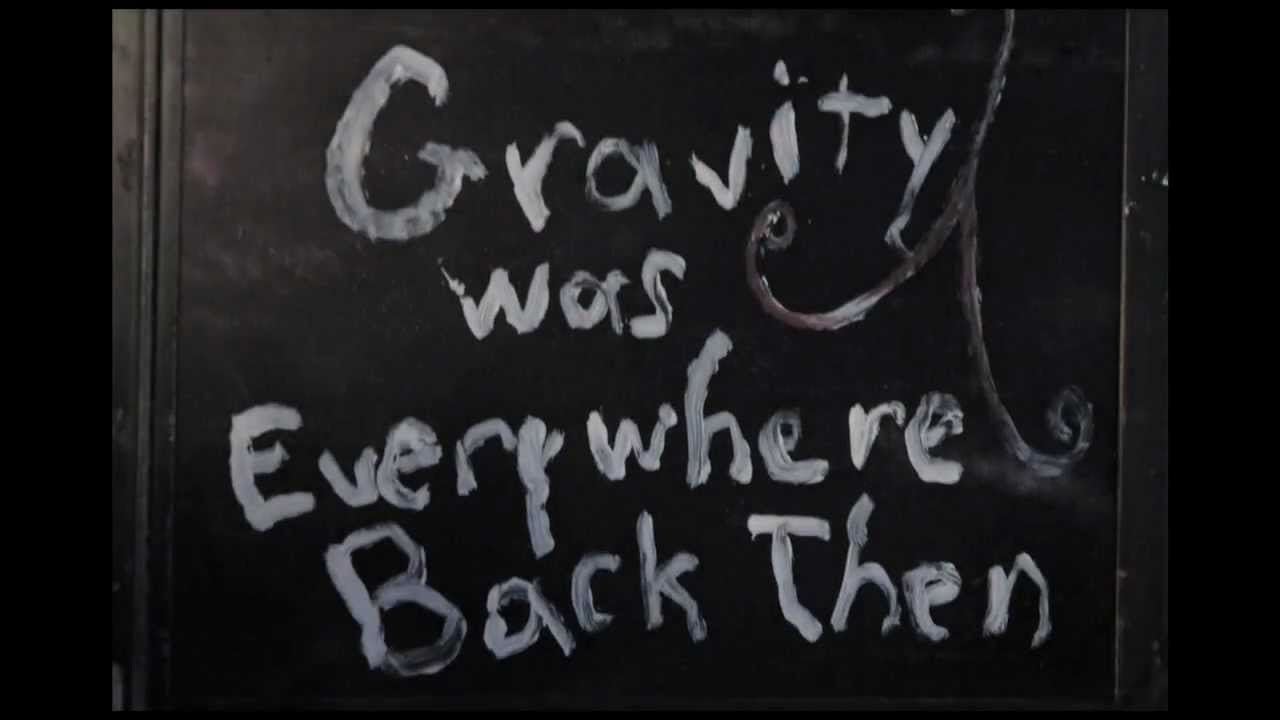 Gravity
was
Everywhere
Back Then